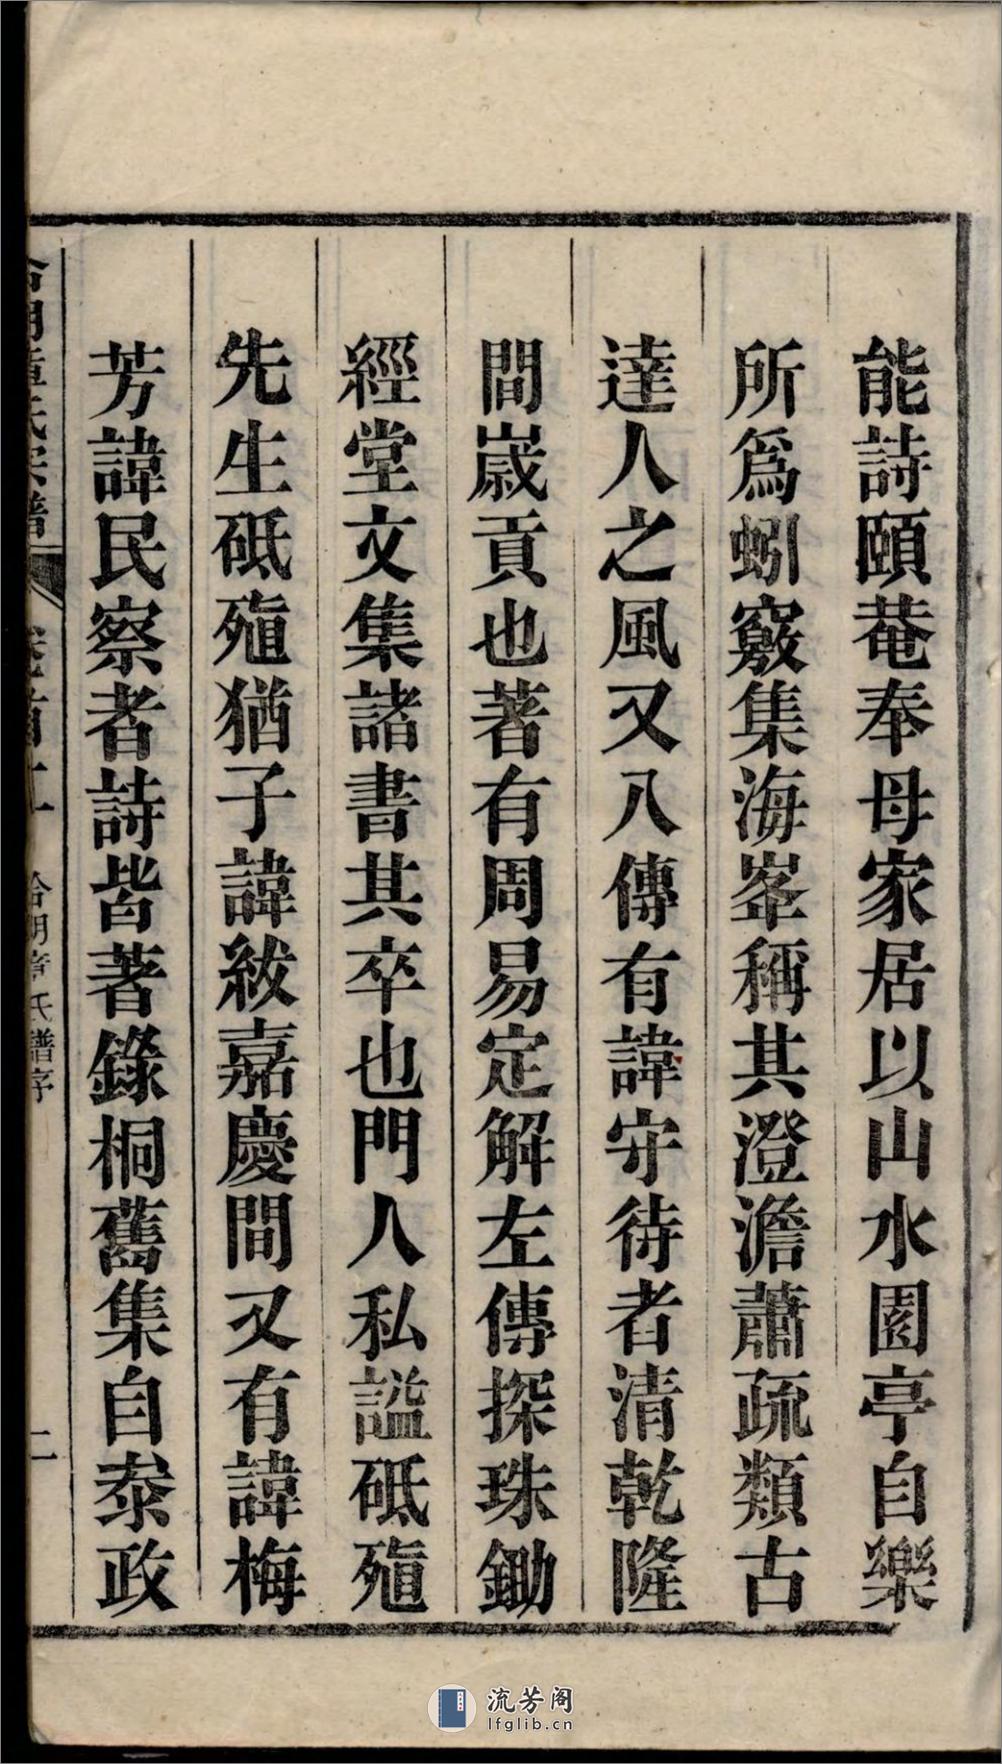 能詩頤菴奉母家居以山水園亭自樂
所爲蚓竅集海峯稱其澄澹蕭疏類古
達人之風又八傳有諱守待者清乾隆
間歲貢也著有周易定解左傳探珠鋤
經堂文集諸書其卒也門人私謚砥殖
先生砥殖猶子諱紱嘉慶間又有諱梅
芳諱民察者詩皆著錄桐舊集自泰政
氏宗譜
卷首上
氏譜序
二
流芳阁
lfglib.cn